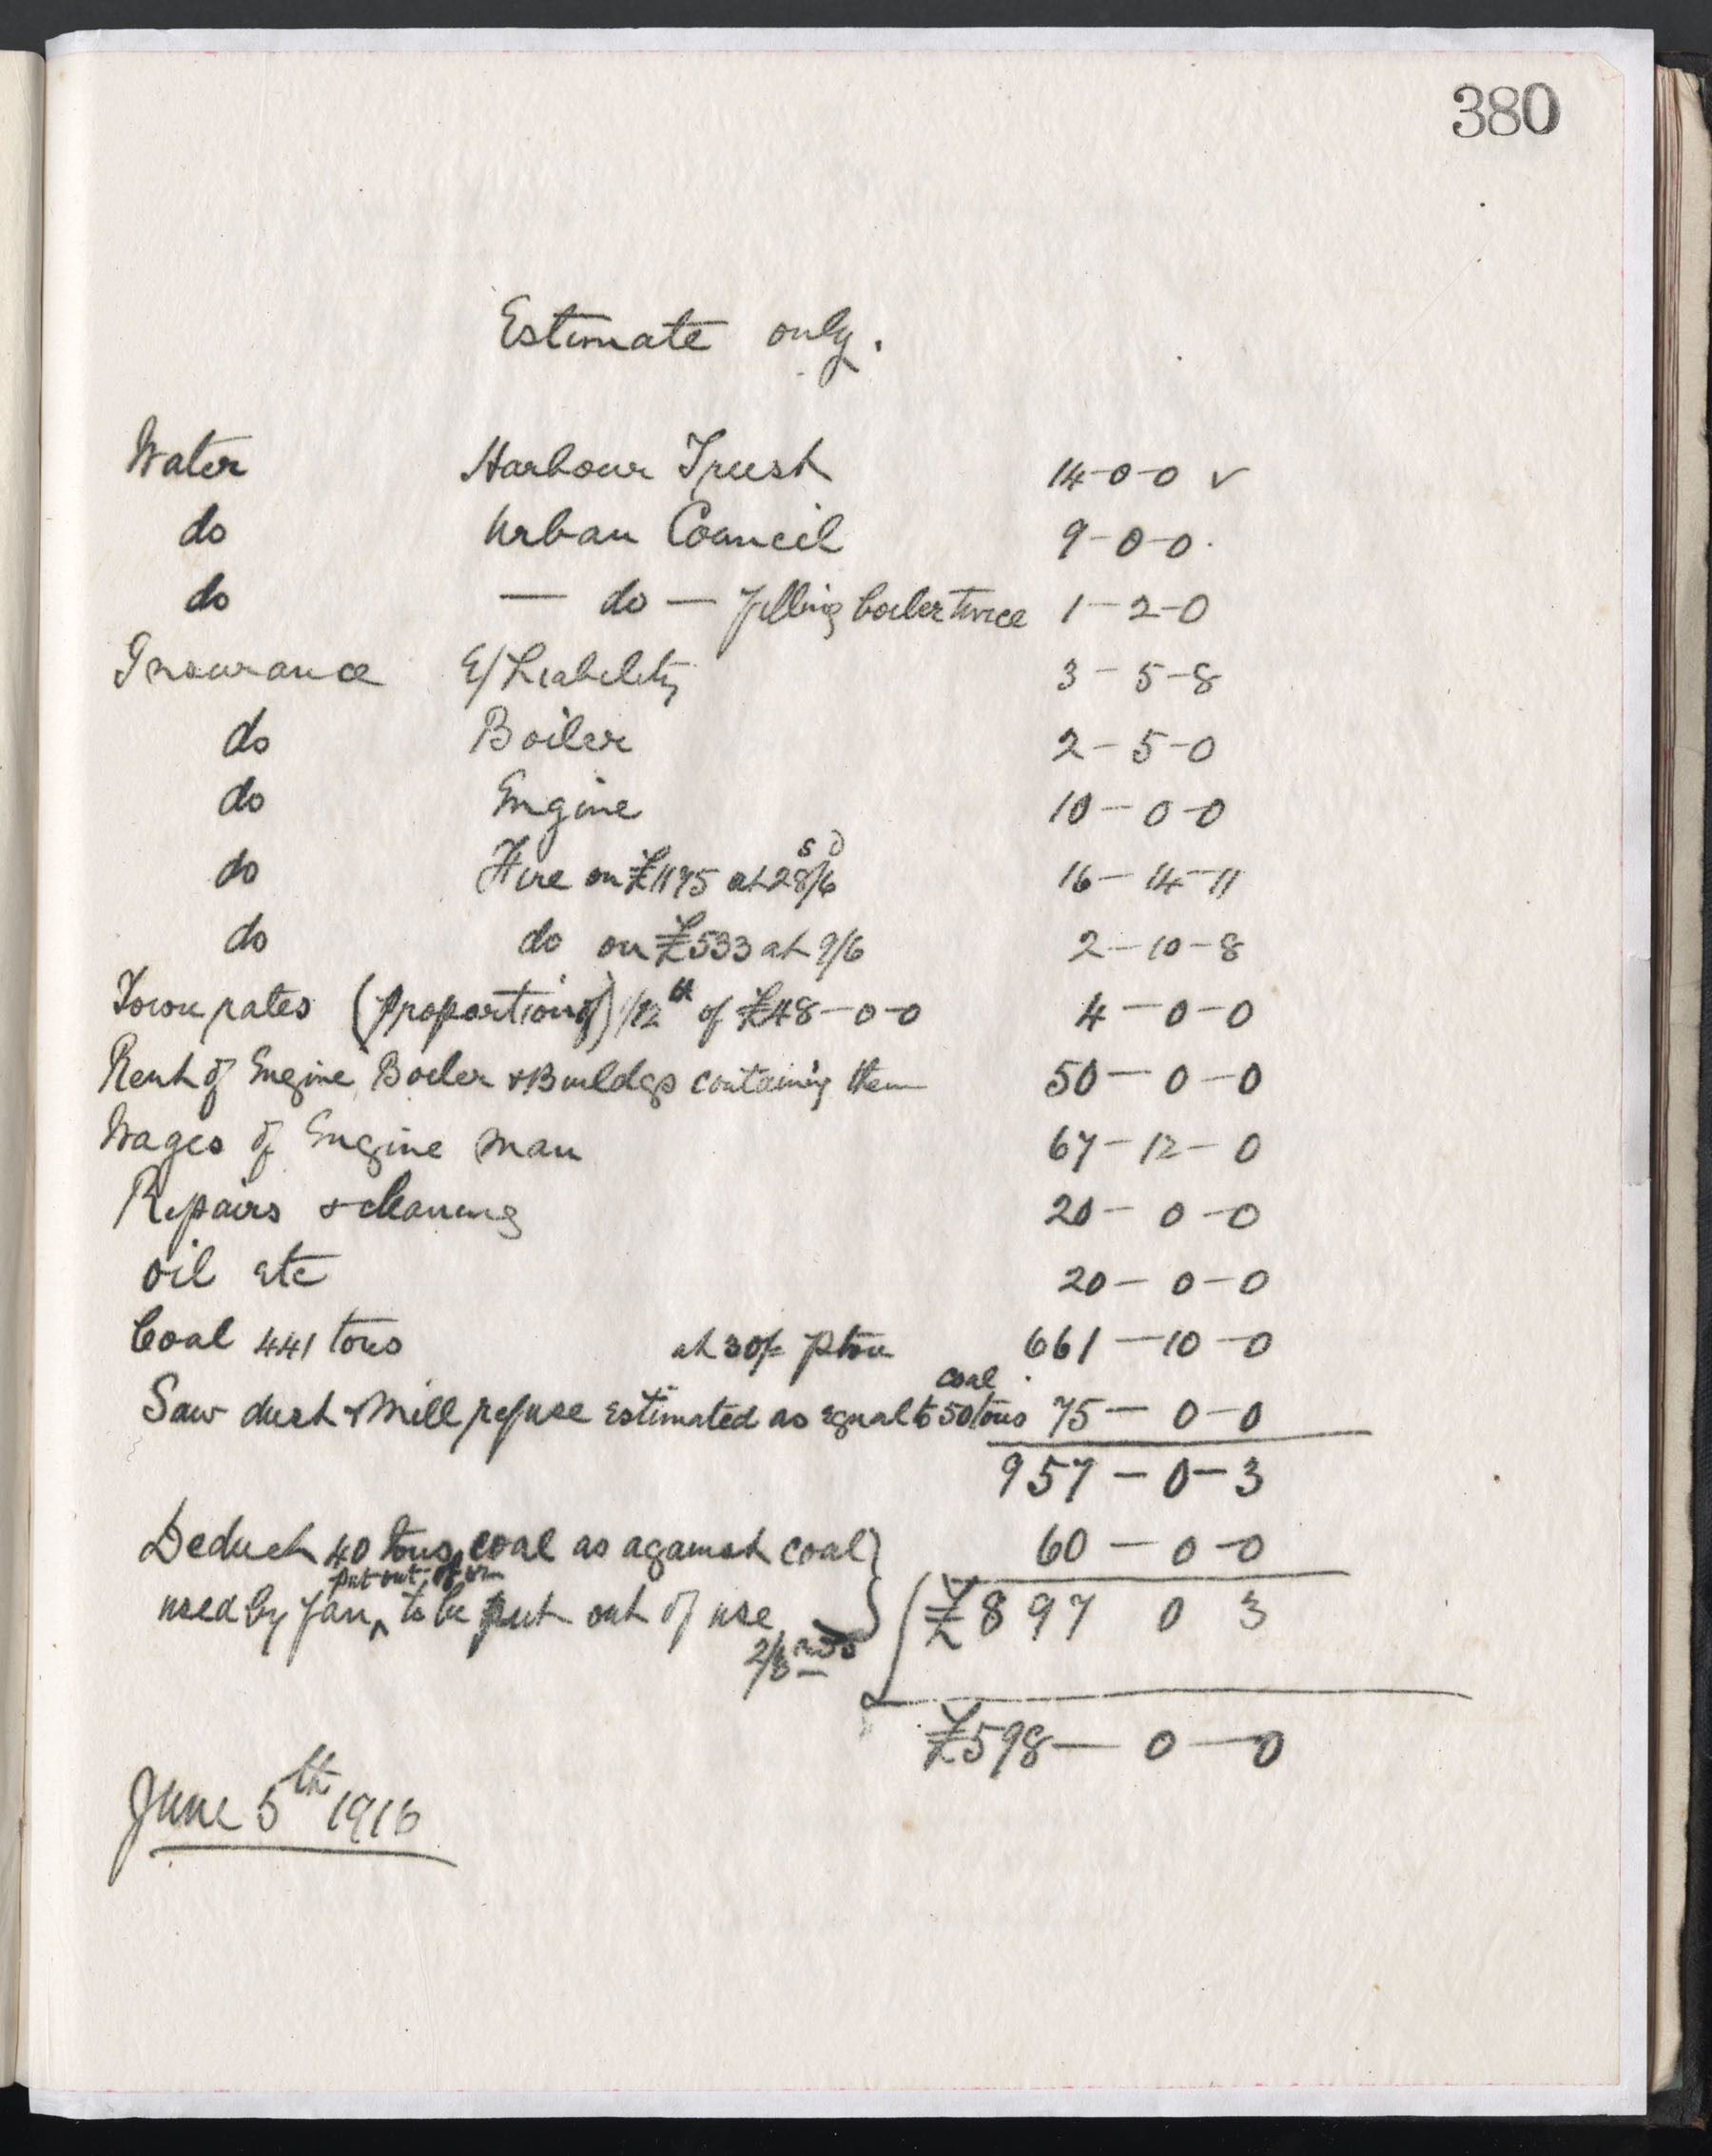 380
Estimate only.
Water Harbour Trust 14-0-0 ✓
do Urban Council 9-0-0.
do — do — filling boiler twice 1-2-0
Insurance E/Liability 3-5-8
do Boiler 2-5-0
do Engine 10-0-0
do Fire on £1175 at 28/6 s D 16-14-11
do do on £533 at 9/6 2-10-8
Town rates (proportion of) 1/12th of £48-0-0 4-0-0
Rent of Engine, Boiler & Buildgs containing them 50-0-0
Wages of Engine man 67-12-0
Repairs & cleaning 20-0-0
oil etc 20-0-0
Coal 441 tons at 30/- p ton 661-10-0
Saw dust & Mill refuse estimated as equal to 50 tons coal 75-0-0
957-0-3
Deduct 40 tons coal as against coal 60-0-0
put out of
used by fan to be put out of use £897 0 3
2/3rds
£598-0-0
June 5th 1916